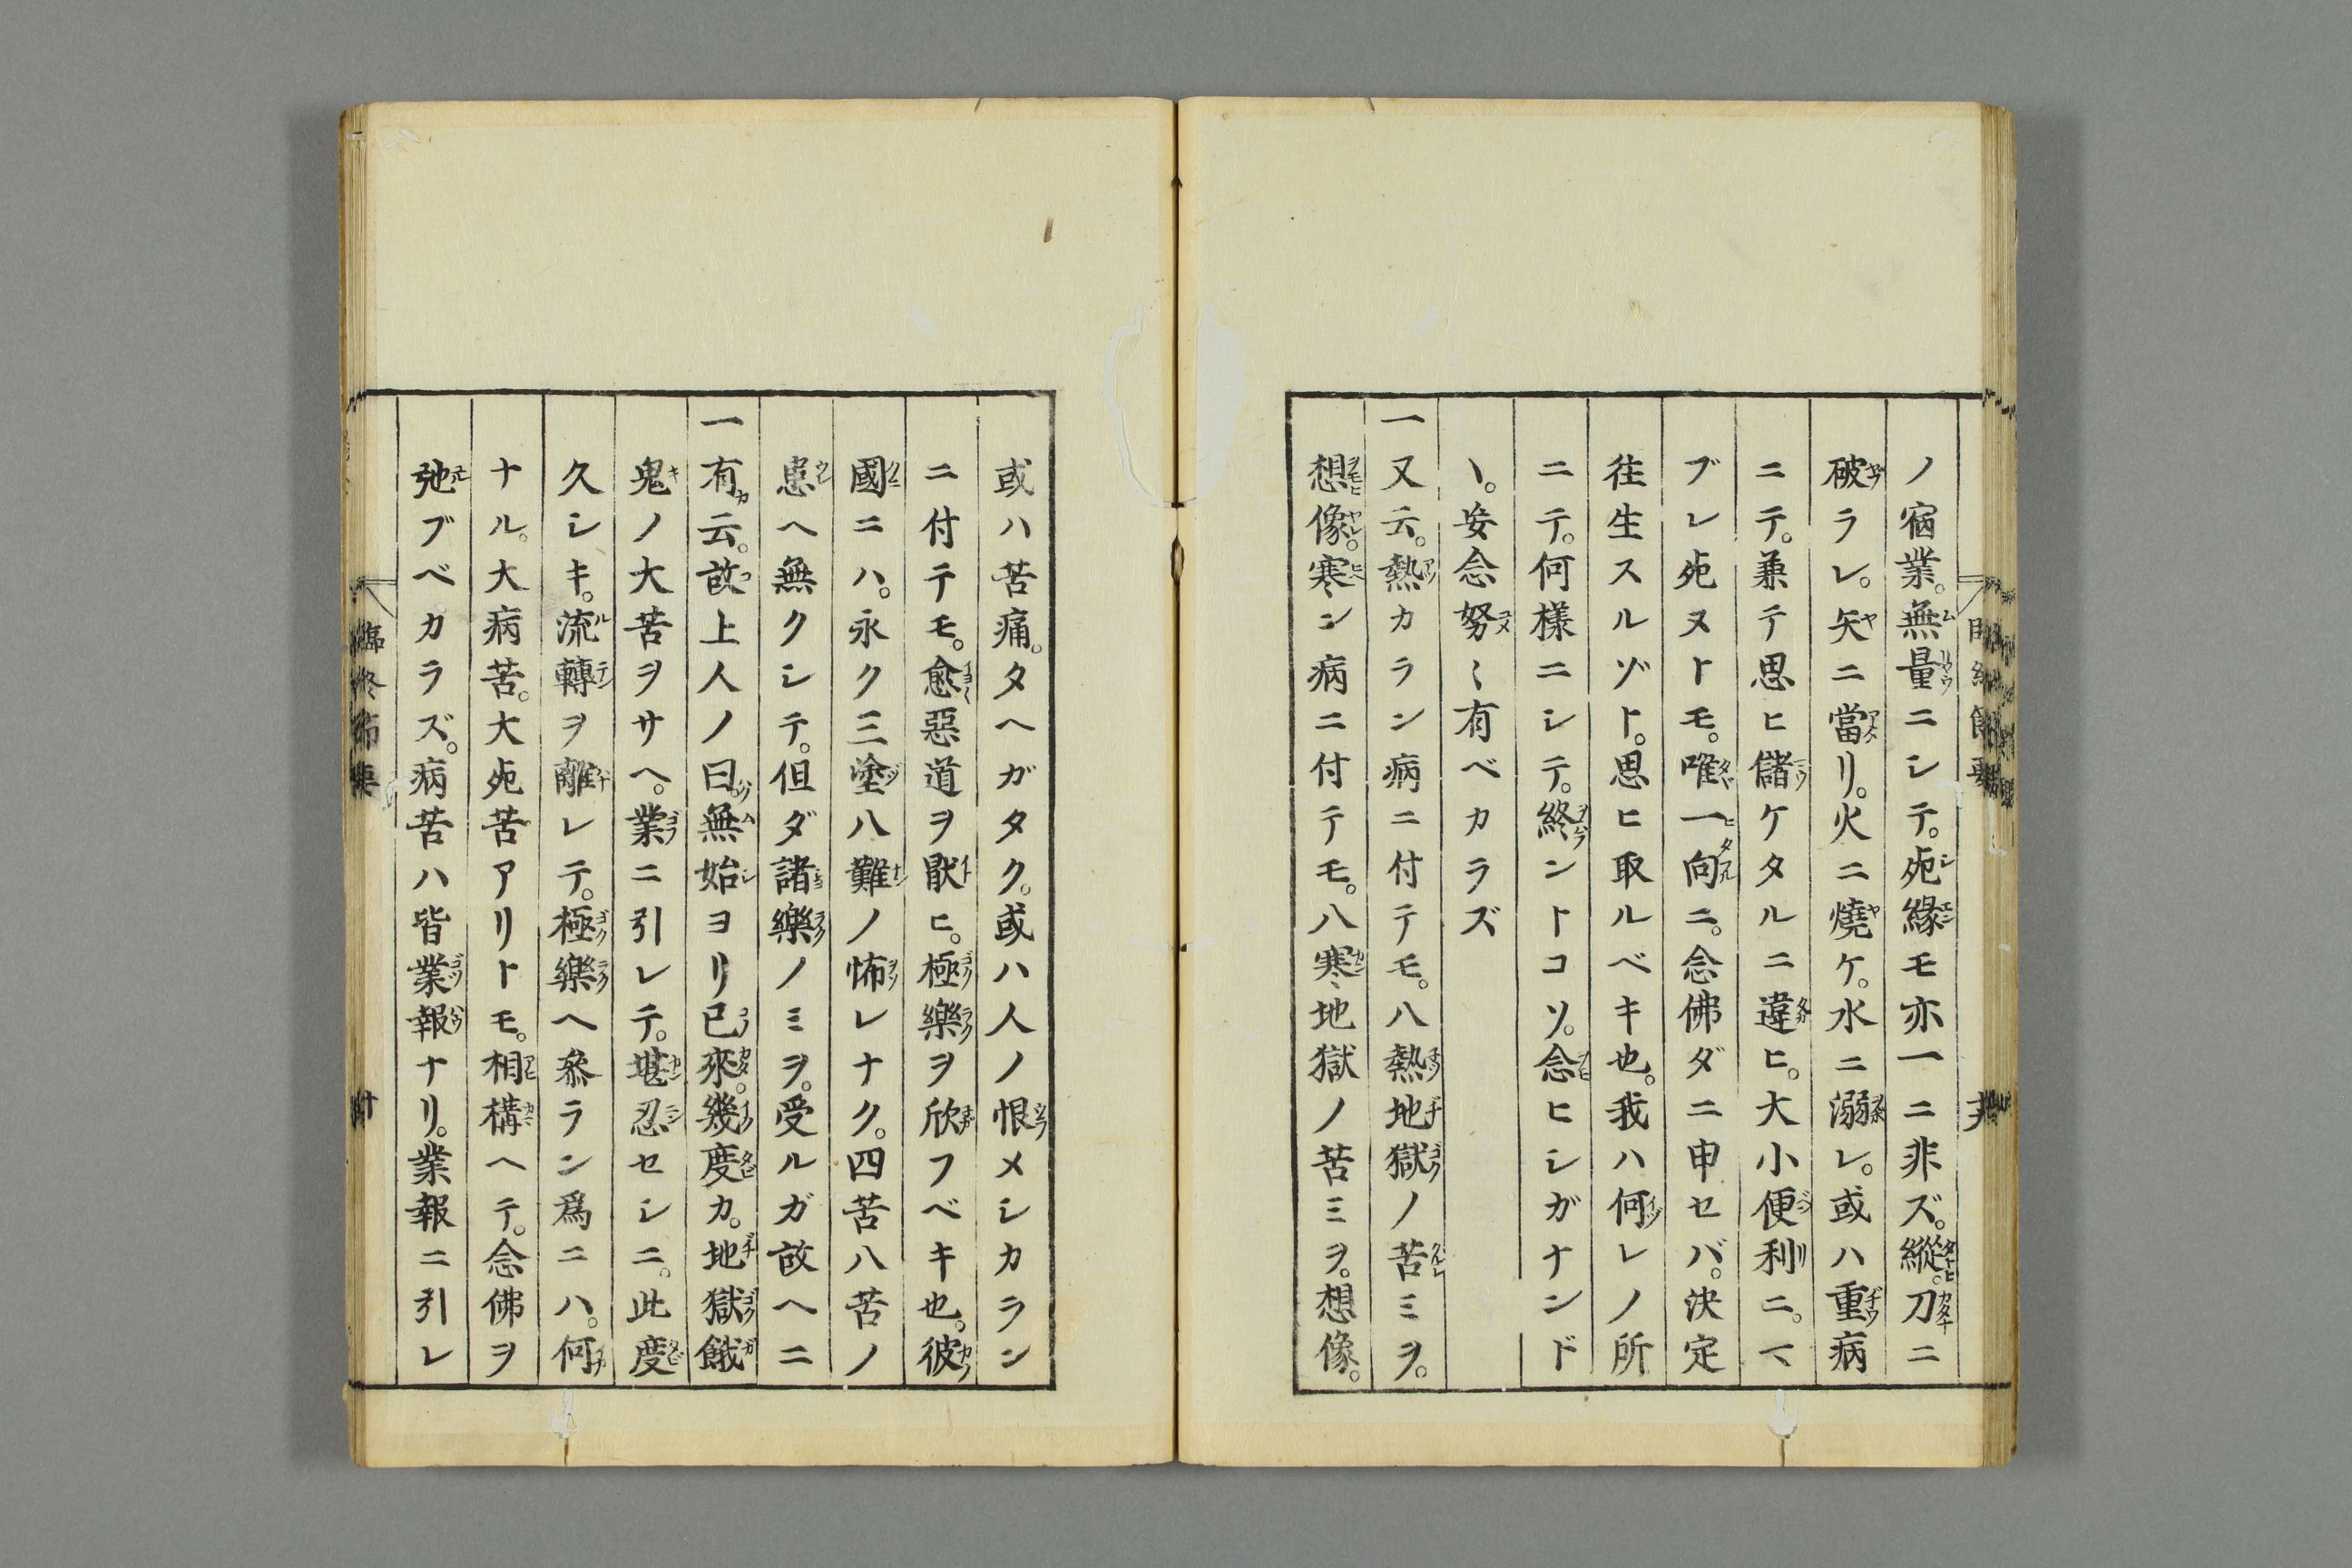 ノ宿業。無量ニシテ。死縁モ亦一ニ非ズ。縱。刀ニ
破ラレ。矢ニ當リ。火ニ燒ケ。水ニ溺レ。或ハ重病
ニテ。兼テ思ヒ儲ケタルニ違ヒ。大小便利ニ。マ
ブレ死ヌトモ。唯一向ニ。念佛ダニ申セバ。決定
往生スルゾト。思ヒ取ルベキ也。我ハ何レノ所
ニテ。何樣ニシテ。終ントコソ。念ヒシガナンド
ヽ。妄念努〻有ベカラズ
一又云。熱カラン病ニ付テモ。八熱地獄ノ苦ミヲ。
想像。寒ン病ニ付テモ。八寒地獄ノ苦ミヲ。想像。
或ハ苦痛。タヘガタク。或ハ人ノ恨メシカラン
ニ付テモ。愈惡道ヲ厭ヒ。極樂ヲ欣フベキ也。彼
國ニハ。永ク三塗八難ノ怖レナク。四苦八苦ノ
患ヘ無クシテ。但ダ諸樂ノミヲ。受ルガ故ヘニ
一有云。故上人ノ曰。無始ヨリ已來。幾度カ。地獄餓
鬼ノ大苦ヲサヘ。業ニ引レテ。堪忍セシニ。此度
久シキ。流轉ヲ離レテ。極樂ヘ參ラン爲ニハ。何
ナル。大病苦。大死苦アリトモ。相構ヘテ。念佛ヲ
弛ブベカラズ。病苦ハ皆業報ナリ。業報ニ引レ
臨終